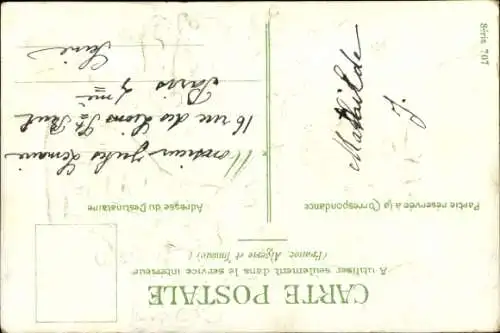 CARTE POSTALE
A utiliser seulement dans le service intérieur
(France, Algérie et Tunisie)
Partie réservée à la Correspondance
Adresse du Destinataire
Mathilde
J.
Monsieur Jules Lemaire
16 rue des Lions St Paul
Paris
Seine
Série 707